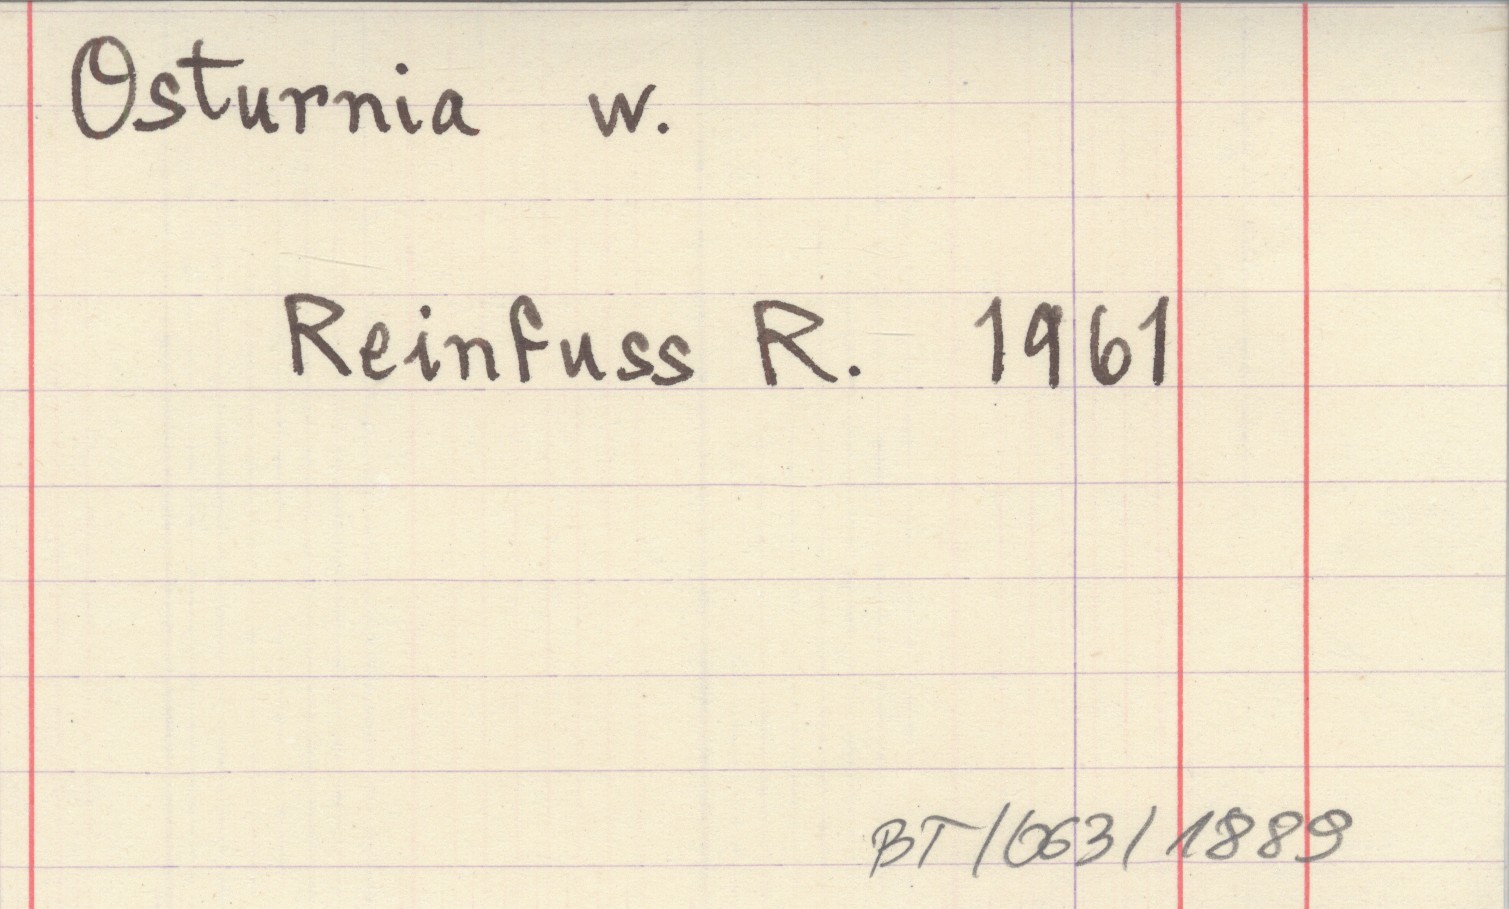 Osturnia w.
Reinfuss R. 1961
BT/063/1889